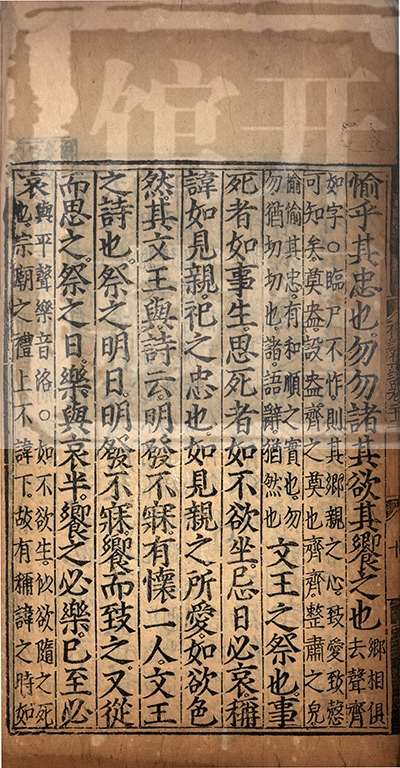 愉乎其忠也勿勿諸其欲其饗之也 鄉相俱去聲齊
如字○臨尸不怍則其鄉親之心致愛致慤
可知矣奠盎設盎齊之奠也齊齊整肅之皃
愉愉其忠有和順之實也勿
勿猶切切也諸語辭猶然也 文王之祭也事
死者如事生思死者如不欲生忌日必哀稱
諱如見親祀之忠也如見親之所愛如欲色
然其文王與詩云明發不寐有懷二人文王
之詩也祭之明日明發不寐饗而致之又從
而思之祭之日樂與哀半饗之必樂已至必
哀 與平聲樂音洛○如不欲生似欲隨之死
也宗廟之禮上不諱下故有稱諱之時如